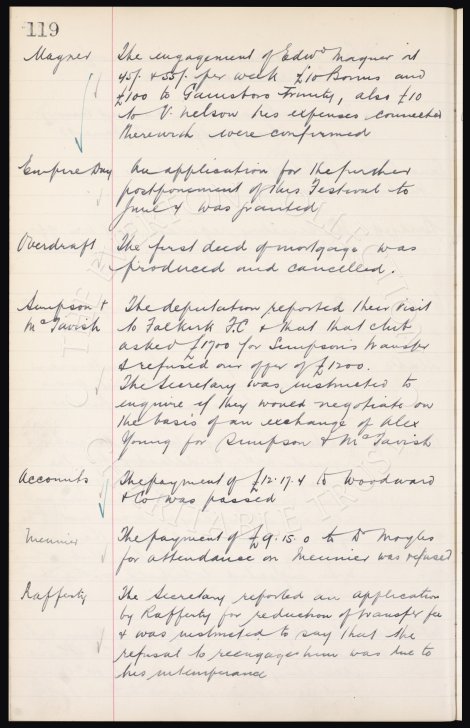 119
Magner The engagement of Edwd Magner at
45/- & 55/- per week £10 Bonus and
£100 to Gainsboro Trinity, also £10
to V. Nelson his expenses connected
therewith were confirmed
Empire Day An application for the further
postponement of this Festival to
June 4 was granted
Overdraft The first deed of mortgage was
produced and cancelled.
Simpson & The deputation reported their visit
McTavish to Falkirk F.C & that that club
asked £1700 for Simpsons transfer
& refused our offer of £1200.
The Secretary was instructed to
enquire if they would negotiate on
the basis of an exchange of Alex
Young for Simpson & McTavish
Accounts The payment of £12.17.4 to Woodward
& Co was passed
Meunier The payment of £9.15.0 to Dr Moyles
for attendance on Meunier was refused
Rafferty The Secretary reported an application
by Rafferty for reduction of transfer fee
& was instructed to say that the
refusal to reengage him was due to
his intemperance